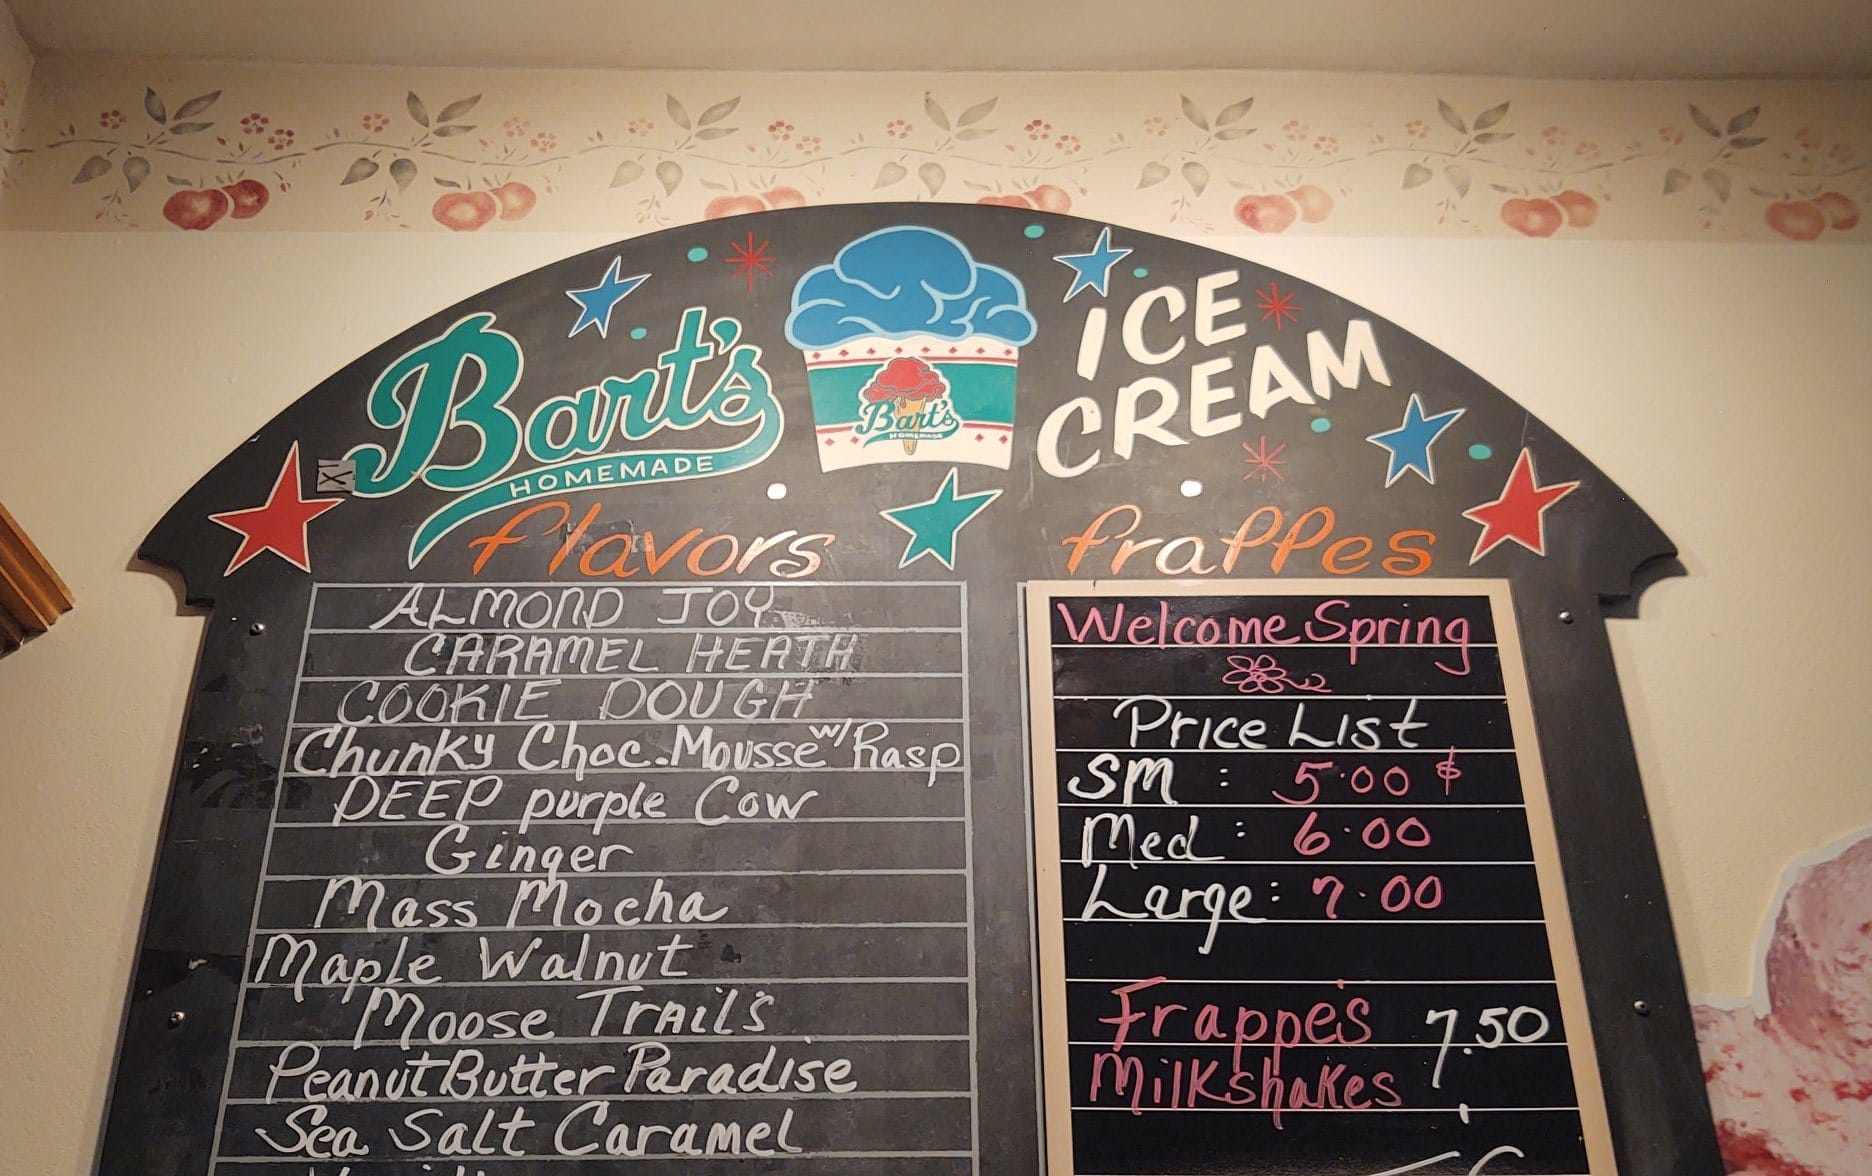 Bart's
HOMEMADE
Bart's
HOMEMADE
ICE
CREAM
flavors
ALMOND JOY
CARAMEL HEATH
COOKIE DOUGH
Chunky Choc. Mousse w/ Rasp
DEEP purple Cow
Ginger
Mass Mocha
Maple Walnut
Moose Trail's
Peanut Butter Paradise
Sea Salt Caramel
frappes
Welcome Spring
Price List
SM : 5.00 $
Med : 6.00
Large : 7.00
Frappe's 7.50
Milkshakes